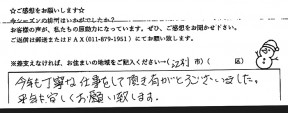 ☆ご感想をお願いします☆
今シーズンの排雪はいかがでしたか？
お客様の声が、私たちの原動力になっています。ぜひ、ご感想をお聞かせ下さい。
ご返信は郵送またはFAX(011-879-1951)にてお願い致します。
※差支えなければ、お住まいの地域をご記入ください→(江別 市)( 区)
今年も丁寧な仕事をして頂き有がとうございました。
来年も宜しくお願い致します。